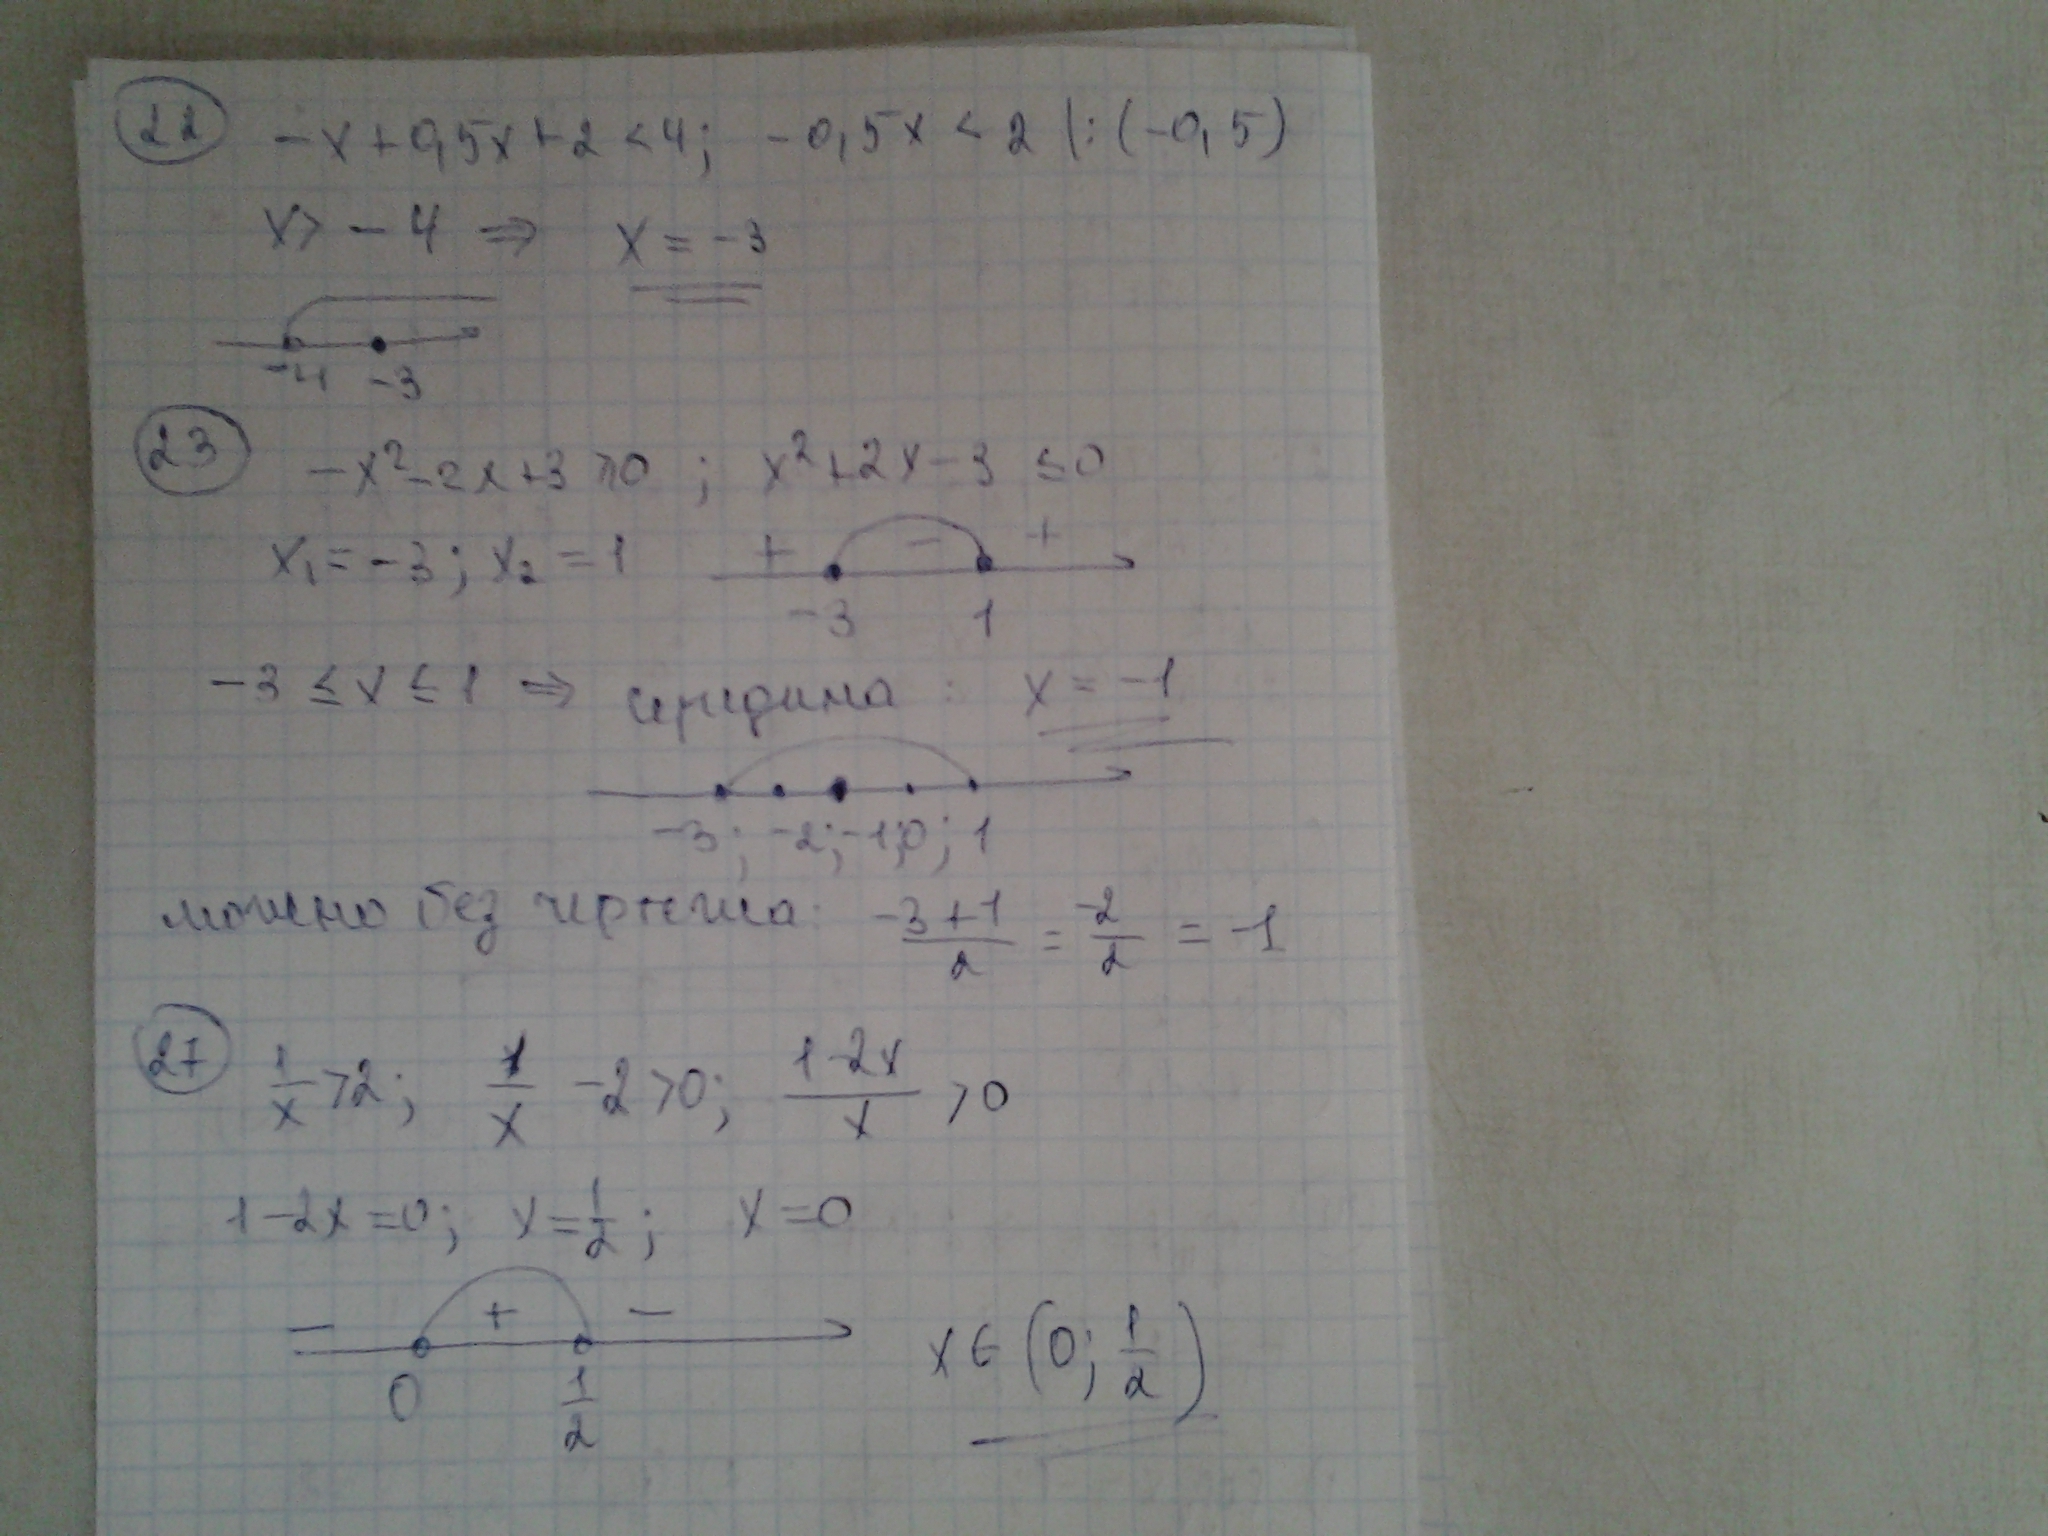 22 -x+0,5x+2<4; -0,5x<2 |:(-0,5)
x>-4 ⇒ x=-3
-4 -3
23 -x²-2x+3≥0; x²+2x-3≤0
x₁=-3; x₂=1 + - +
-3 1
-3≤x≤1 ⇒ середина: x=-1
-3; -2; -1; 0; 1
можно без чертежа: (-3+1)/2 = -2/2 = -1
27 1/x>2; 1/x-2>0; (1-2x)/x>0
1-2x=0; x=1/2; x=0
- + -
0 1/2 x∈(0; 1/2)